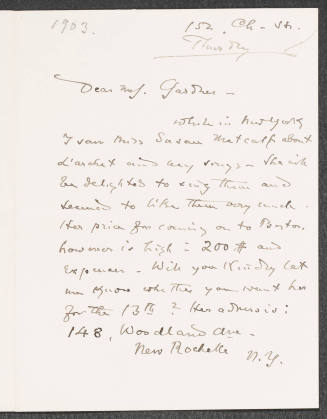 1903.
152. Ch- St.
Thursday
Dear Mrs. Gardner -
While in New York
I saw Miss Susan Metcalf about
L'archet and my songs - She will
be delighted to sing them and
seemed to like them very much.
Her price for coming on to Boston,
however is high = 200 $ and
expenses - Will you kindly let
me know whether you want her
for the 13th? Her address is:
148, Woodland Ave -
New Rochelle
N.Y.